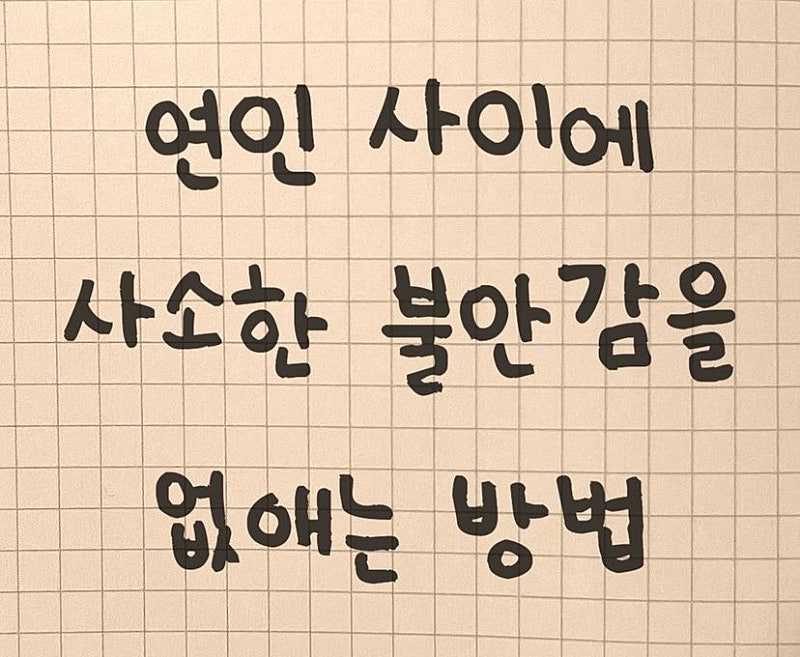 연인 사이에
사소한 불안감을
없애는 방법